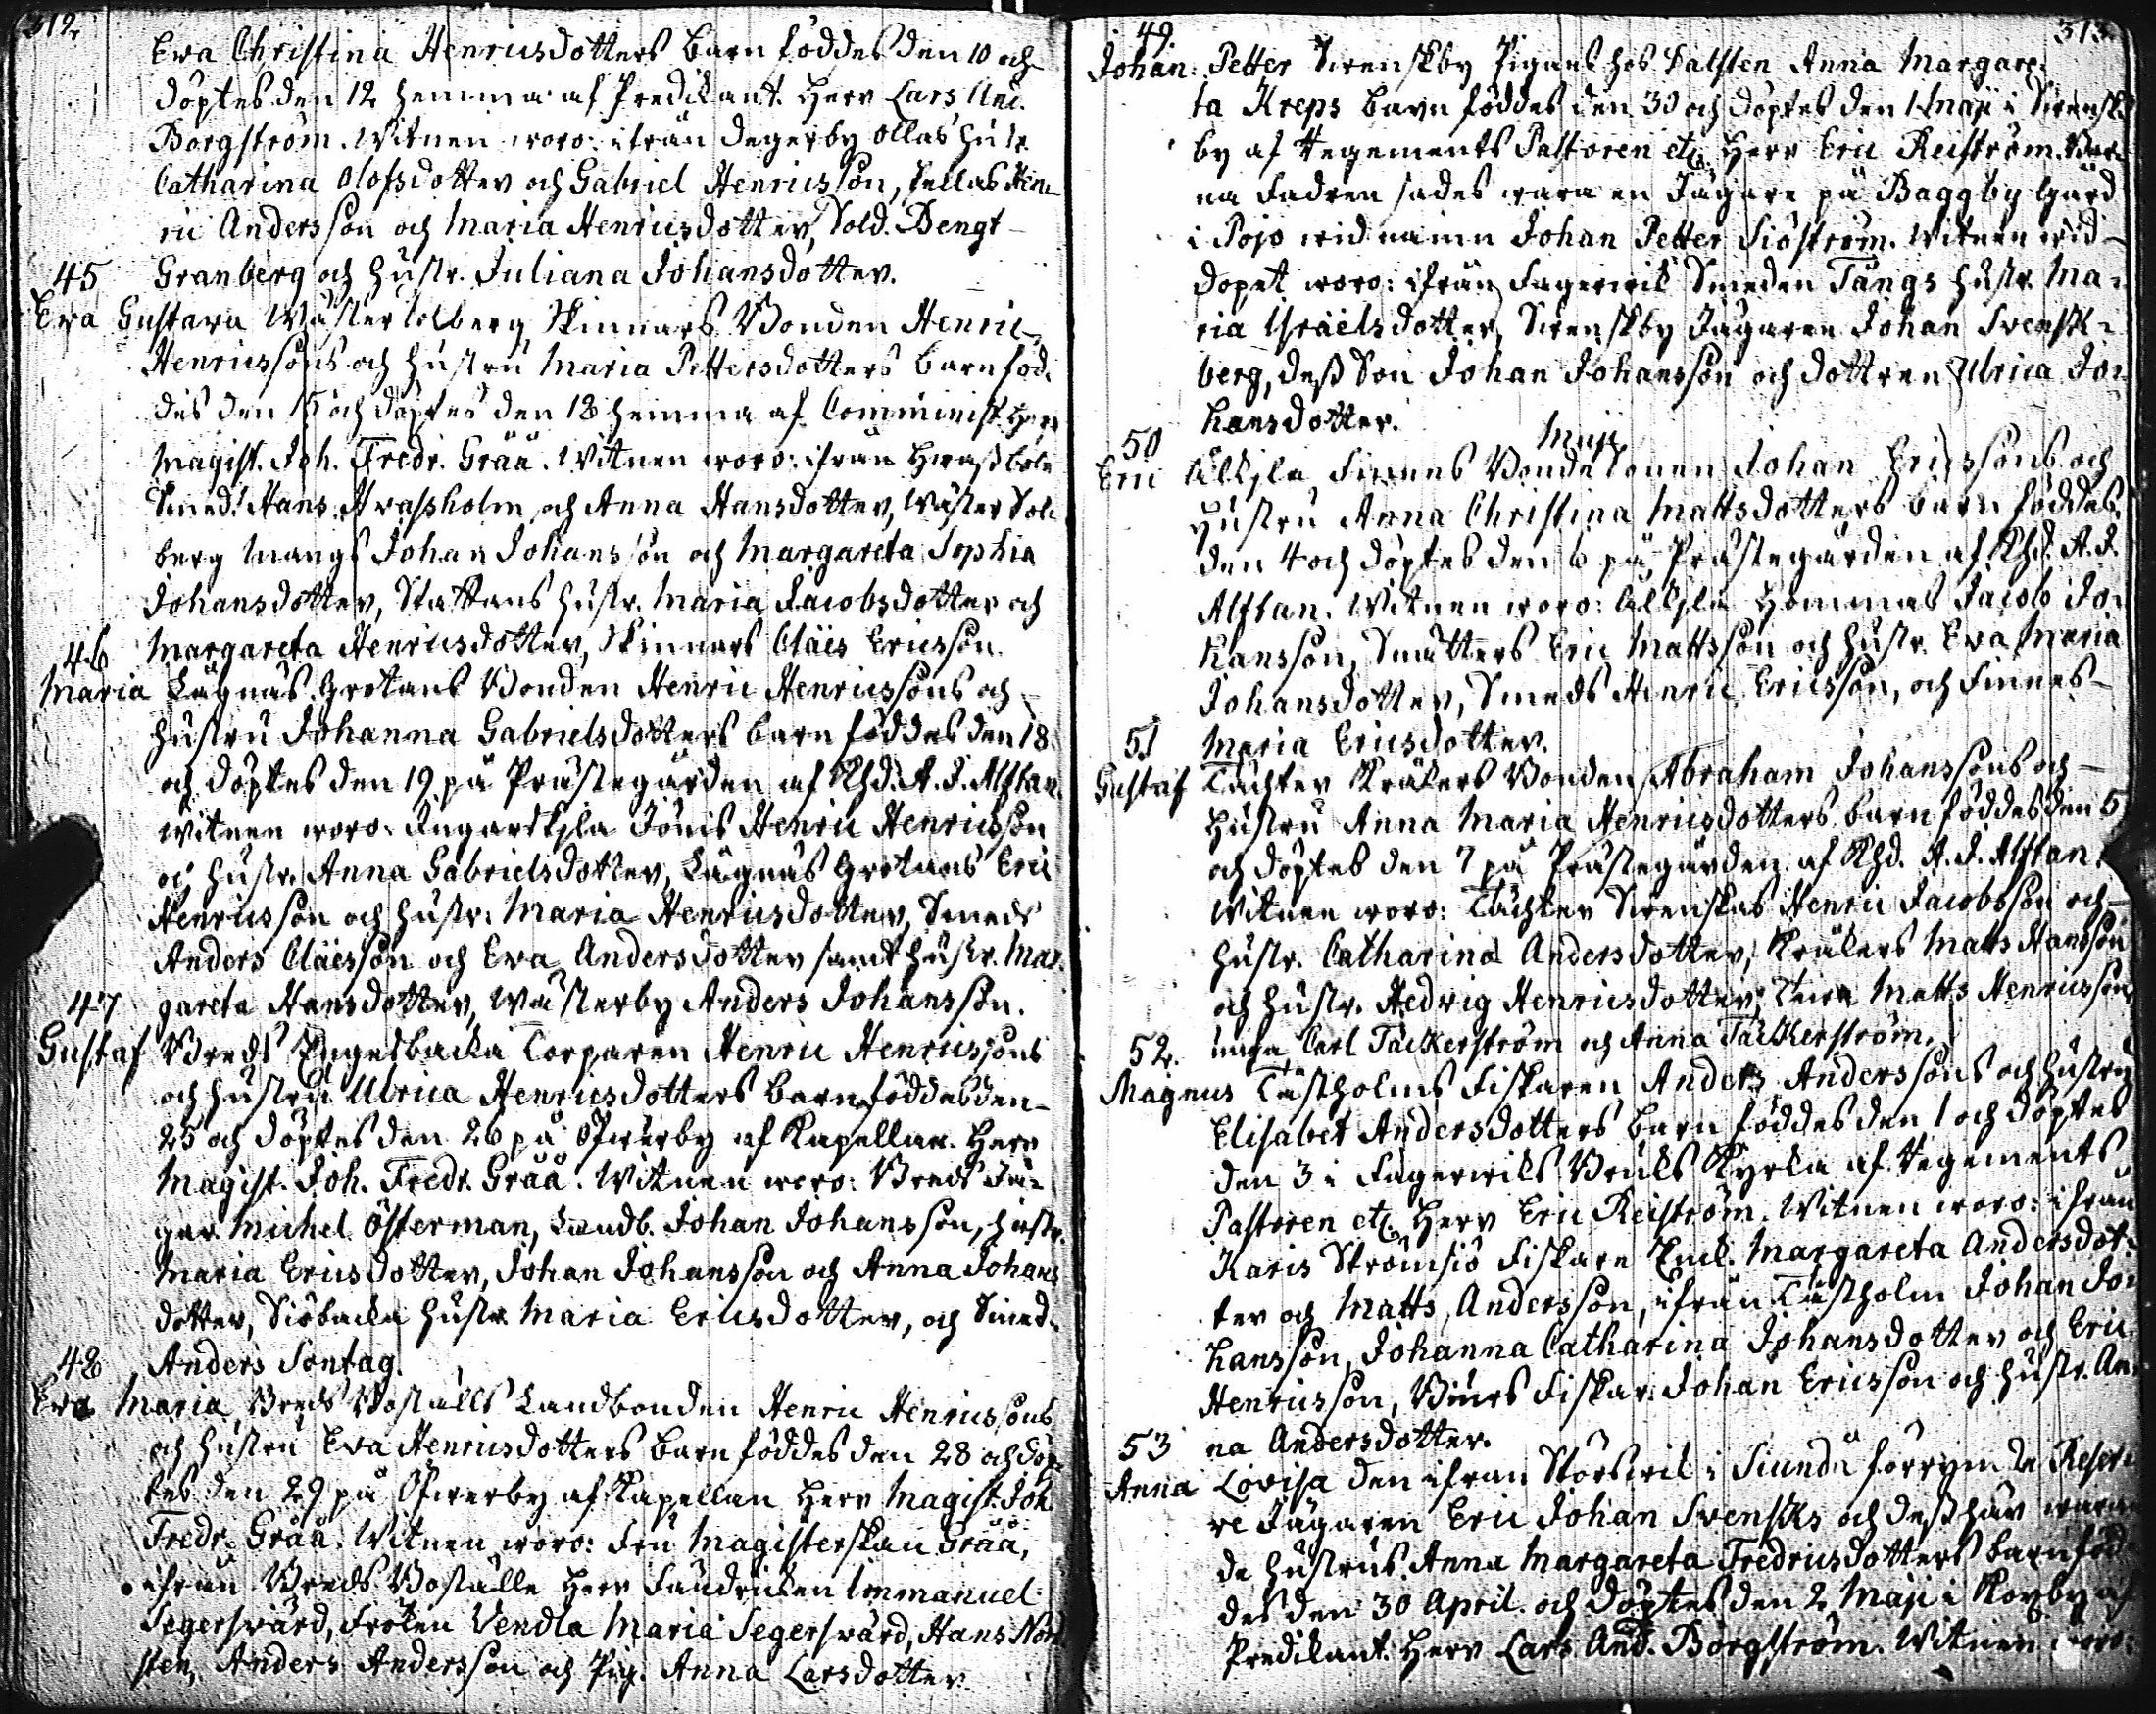 312.
Eva Christina Henricsdotters barn föddes den 10 och
döptes den 12 hemma af Predikant. Herr Lars And.
Borgström. Witnen woro: ifrån Degerby Ollas hustr.
Catharina Olofsdotter och Gabriel Henricsson, Hen-
ric Andersson och Maria Henricsdotter, Sold. Bengt
Granberg och hustr. Juliana Johansdotter.
45
Eva Gustava Wäster Solberg Skinnars Bonden Henric
Henricssons och hustru Maria Pettersdotters barn föd-
des den 15 och döptes den 18 hemma af Comminist. Herr
Magist. Joh. Fredr. Gråå. Witnen woro: ifrån
Smed. Hans Hrassholm och Anna Hansdotter, Wäster Sol-
berg Mangs Johan Johansson och Margareta Sophia
Johansdotter, Stattans hustr. Maria Jacobsdotter och
Margareta Henricsdotter, Skinnars Claës Ericsson.
46
Maria Lågnäs Grotans Bonden Henric Henricssons och
hustru Johanna Gabrielsdotters barn föddes den 18
och döptes den 19 på Prästegården af Khd. A. J. Alftan.
Witnen woro: Ingarskyla Jönis Henric Henricsson
och hustr. Anna Gabrielsdotter, Lågnäs Grotans Eric
Henricsson och hustr. Maria Henricsdotter, Smeds
Anders Claësson och Eva Andersdotter samt hustr. Mar-
gareta Hansdotter, Wästerby Anders Johansson.
47
Gustaf Breds Engesbacka Torparen Henric Henricssons
och hustru Ulrica Henricsdotters barn föddes den
25 och döptes den 26 på Öfwerby af Kapellan. Herr
Magist. Joh. Fredr. Gråå. Witnen woro: Breds Jä-
gar. Michel Österman, Landb. Johan Johansson, hustr.
Maria Ericsdotter, Johan Johansson och Anna Johans
dotter, Siöbacka hustr. Maria Ericsdotter, och Smed.
Anders Sontag.
48
Eva Maria, Breds Boställs Landbonden Henric Henricssons
och hustru Eva Henricsdotters barn föddes den 28 och döp-
tes den 29 på Öfwerby af Kapellan Herr Magist. Joh.
Fredr. Gråå. Witnen woro: Fru Magisterskan Gråå,
ifrån Breds Boställe Herr Fändricken Immanuel
Segersvärd, Fröken Vendla Maria Segersvärd, Hans Nor-
sten, Anders Andersson och Pig. Anna Larsdotter.
313.
49.
Johan Petter Svenskby Pigans hos Dalsten Anna Margare-
ta Kreps barn föddes den 30 och döptes den 1 Maji i Svensk-
by af Regements Pastoren etc. Herr Eric Reiström. Bar-
na Fadren sades wara en Jägare på Baggby Gård
i Pojo wid namn Johan Petter Siöström. Witnen wid
dopet woro: ifrån Fagerwik Smeden Tångs hustr. Ma-
ria Israëlsdotter, Svenskby Jägaren Johan Svensk-
berg, dess Son Johan Johansson och dottren Ulrica Jo-
hansdotter.
Maji
50
Eric Finnes Bondesonen Johan Ericssons och
hustru Anna Christina Mattsdotters barn föddes
den 4 och döptes den 6 på Prästegården af Khd. A. J.
Alftan. Witnen woro: Hommas Jacob Jo-
hansson, Smätters Eric Mattsson och hustr. Eva Maria
Johansdotter, Smeds Henric Ericsson, och Finnes
Maria Ericsdotter.
51
Gustaf Täckter Kräkers Bonden Abraham Johanssons och
hustru Anna Maria Henricsdotters barn föddes den 5
och döptes den 7 på Prästegården af Khd. A. J. Alftan.
Witnen woro: Täckter Svenskas Henric Jacobsson och
hustr. Catharina Andersdotter, Kräkers Matts Hansson
och hustr. Hedvig Henricsdotter, Matts Henricsson,
unga Carl Täckerström och Anna Täckerström.
52.
Magnus Tästholms Fiskaren Anders Anderssons och hustru
Elisabet Andersdotters barn föddes den 1 och döptes
den 3 i Fagerwiks Bruks Kyrka af Regements
Pastoren etc. Herr Eric Reiström. Witnen woro: ifrån
Karis Strömsiö Fiskare Enk. Margareta Andersdot-
ter och Matts Andersson, ifrån Tästholm Johan Jo-
hansson, Johanna Catharina Johansdotter och Eric
Henricsson, Fiskar. Johan Ericsson och hustr. An-
na Andersdotter.
53
Anna Lovisa den ifrån Störswik i Siundå förrymde Reser-
ve Jägaren Eric Johan Svensks och dess här waran-
de hustrus Anna Margareta Fredricsdotters barn föd-
des den 30 April. och döptes den 2 Maji i Korsby af
Predikant. Herr Lars And. Borgström. Witnen woro: